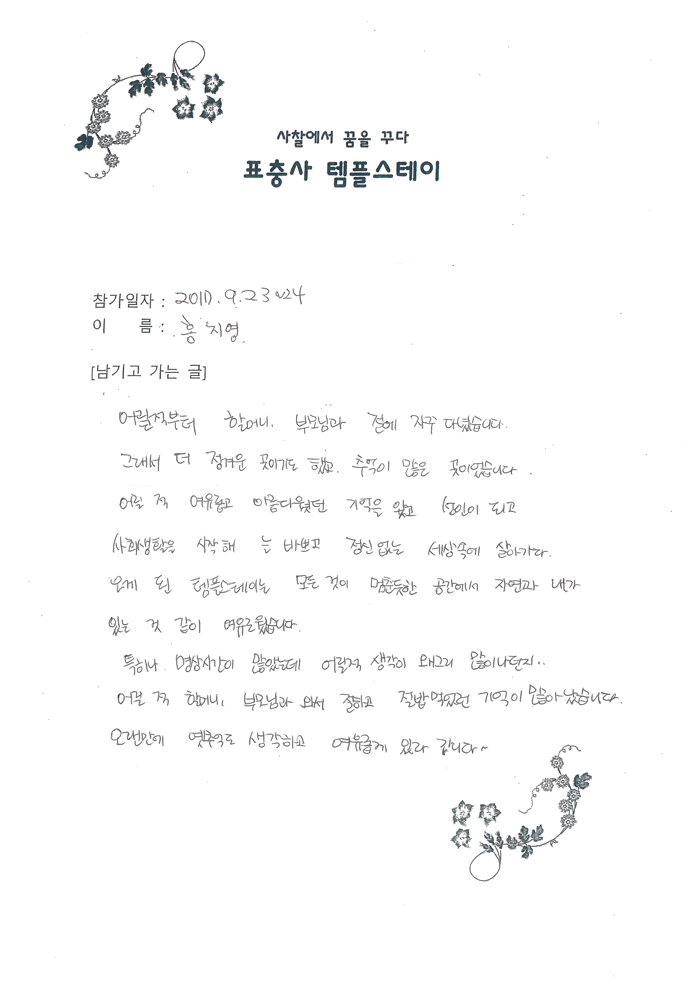 사찰에서 꿈을 꾸다
표충사 템플스테이
참가일자 : 2017. 9. 23~24
이 름 : 홍 지영
[남기고 가는 글]
어릴적부터 할머니, 부모님과 절에 자꾸 다녔습니다.
그래서 더 정겨운 곳이기도 했고, 추억이 많은 곳이었습니다.
어릴 적 여유롭고 아름다웠던 기억을 잊고 성인이 되고
사회생활을 시작해 는 바쁘고 정신없는 세상속에 살아가다.
오게 된 템플스테이는 모든 것이 멈춘듯한 공간에서 자연과 내가
있는 것 같이 여유로웠습니다.
특히나 명상시간이 많았는데 어릴적 생각이 왜그리 많이나던지..
어릴 적 할머니, 부모님과 와서 절하고 절밥먹었던 기억이 많이 났습니다.
오랜만에 옛추억도 생각하고 여유롭게 있다 갑니다~